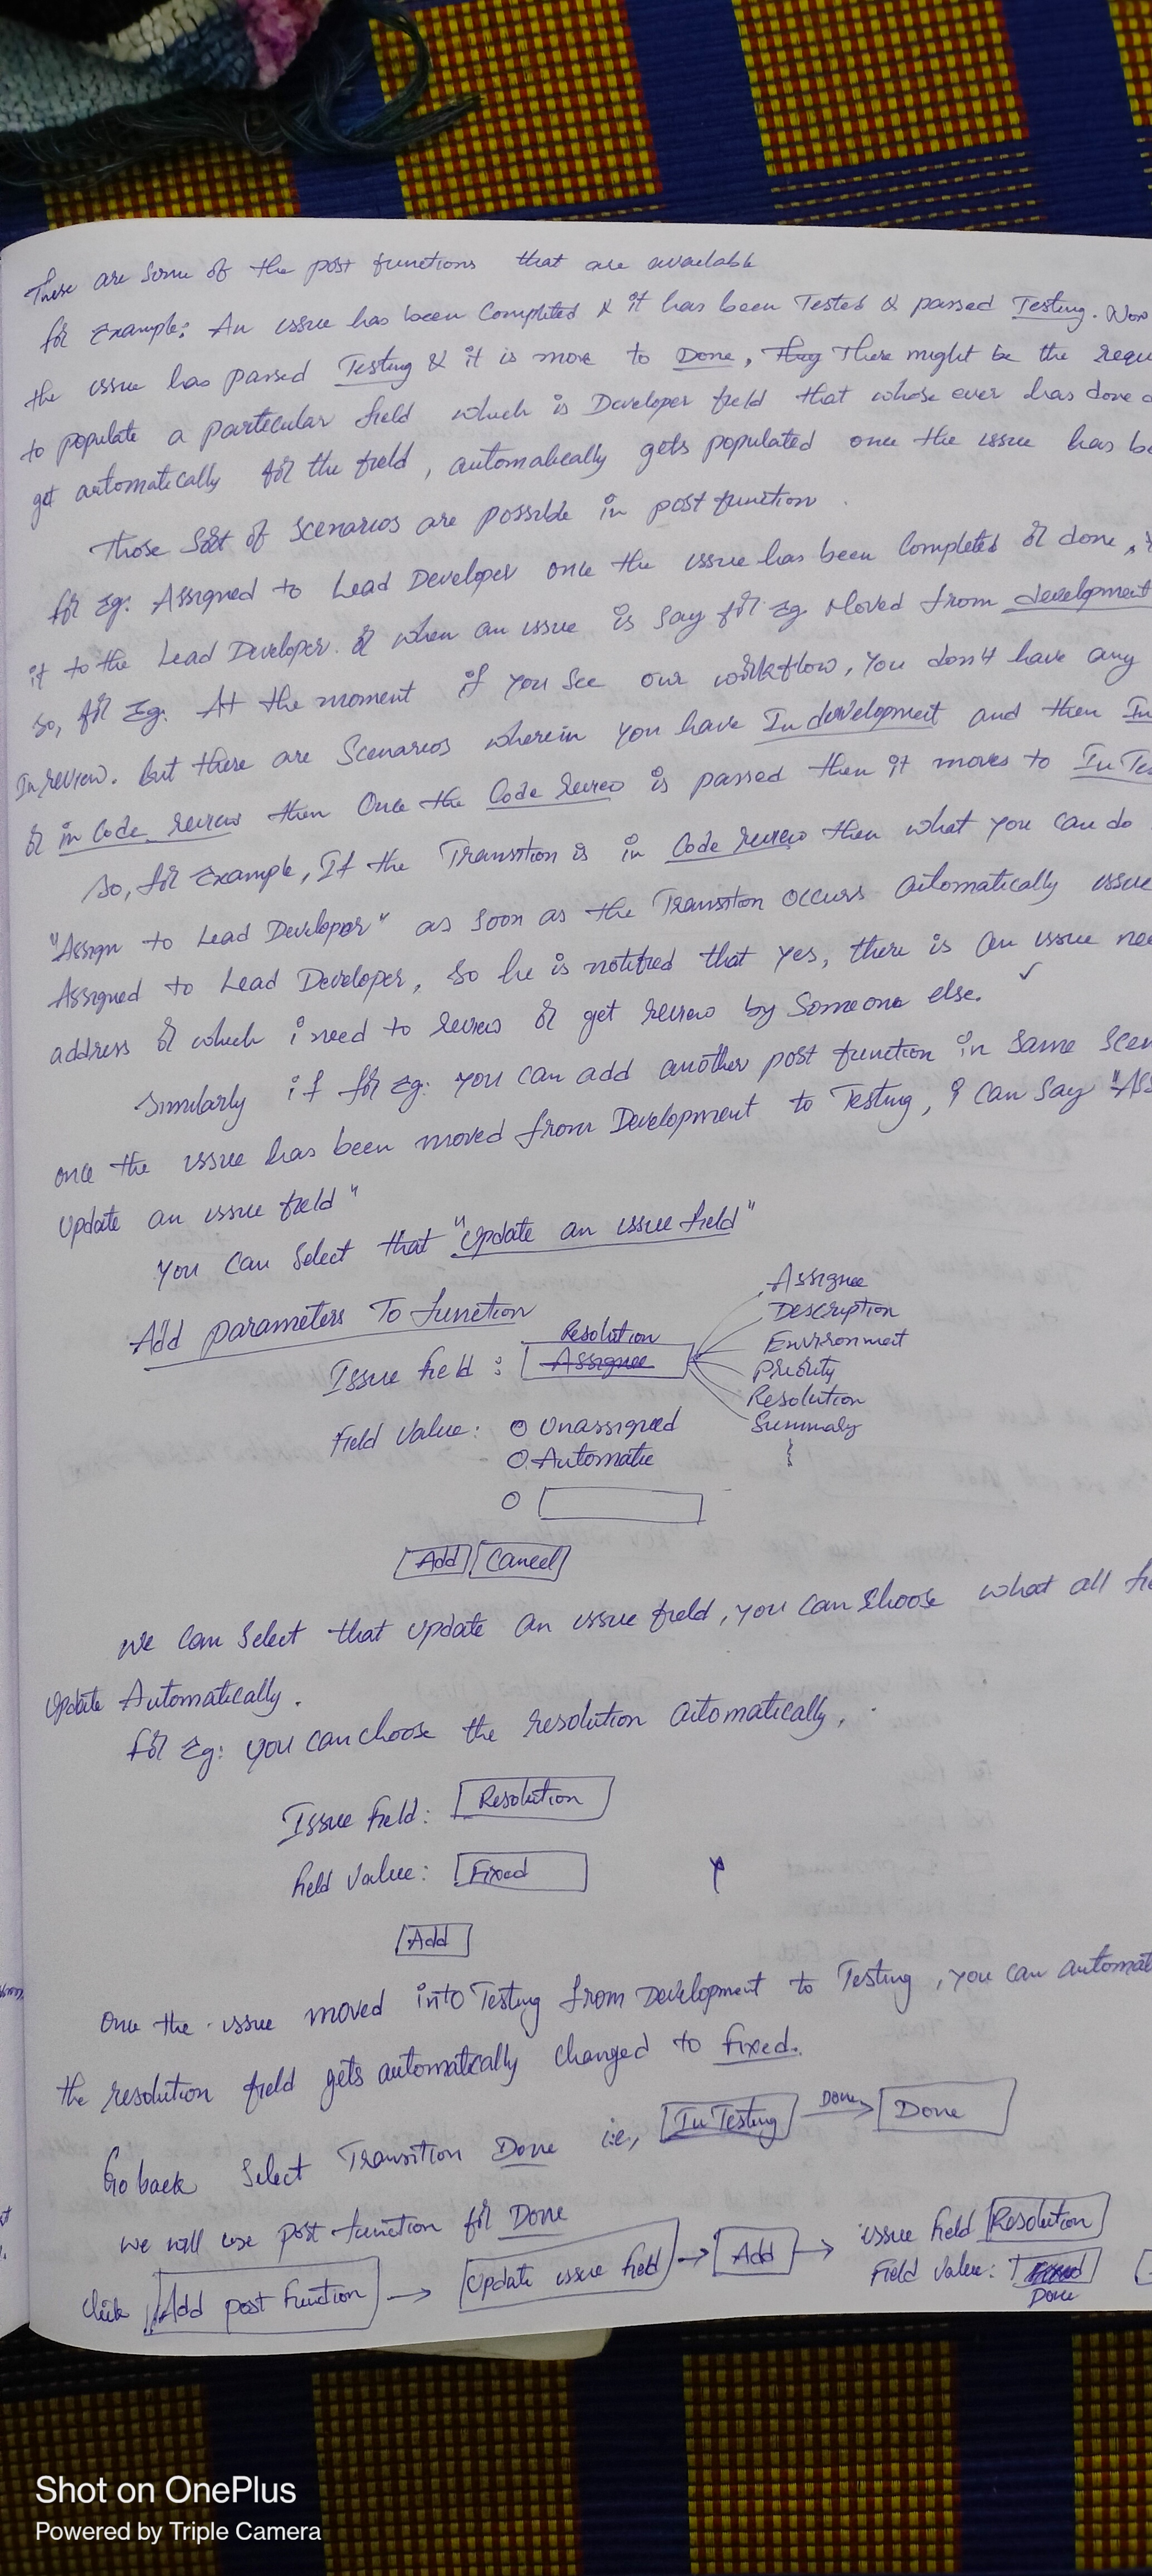 These are some of the post functions that are available
for Example: An issue has been Completed & it has been Tested & passed Testing. Now
the issue has passed Testing & it is move to Done, They There might be the requ
to populate a particular field which is Developer field that whose ever has done
get automatically for the field, automatically gets populated once the issue has be
Those Sort of Scenarios are possible in post function.
for Eg: Assigned to Lead Developer once the issue has been Completed or done,
it to the Lead Developer. or when an issue is say for Eg Moved from development
So, for Eg: At the moment if you see our workflow, you don't have any
In review. but there are Scenarios wherein you have In development and then In
or in Code review then Once the Code review is passed then it moves to In Tes
So, for Example, If the Transition is in Code review then what you can do
"Assign to Lead Developer" as soon as the Transition occurs automatically issue
Assigned to Lead Developer, so he is notified that yes, there is an issue nee
address or which i need to review or get review by Someone else. ✓
Similarly if for Eg: you can add another post function in same Scen
once the issue has been moved from Development to Testing, I can say "Ass
Update an issue field"
you can Select that "Update an issue field"
Add parameters To function
Resolution
Issue field : Assignee
Field Value: Unassigned
Automatic
Assignee
Description
Environment
Priority
Resolution
Summary
Add Cancel
We can Select that update an issue field, you can choose what all fie
Update Automatically.
for Eg: you can choose the resolution automatically.
Issue field: Resolution
field Value: Fixed
Add
Once the issue moved into Testing from Development to Testing, you can automat
the resolution field gets automatically changed to fixed.
Go back Select Transition Done i.e, In Testing Done Done
we will use post function for Done
Click Add post function → Update issue field → Add → issue field Resolution
Field Value:
Done
Shot on OnePlus
Powered by Triple Camera